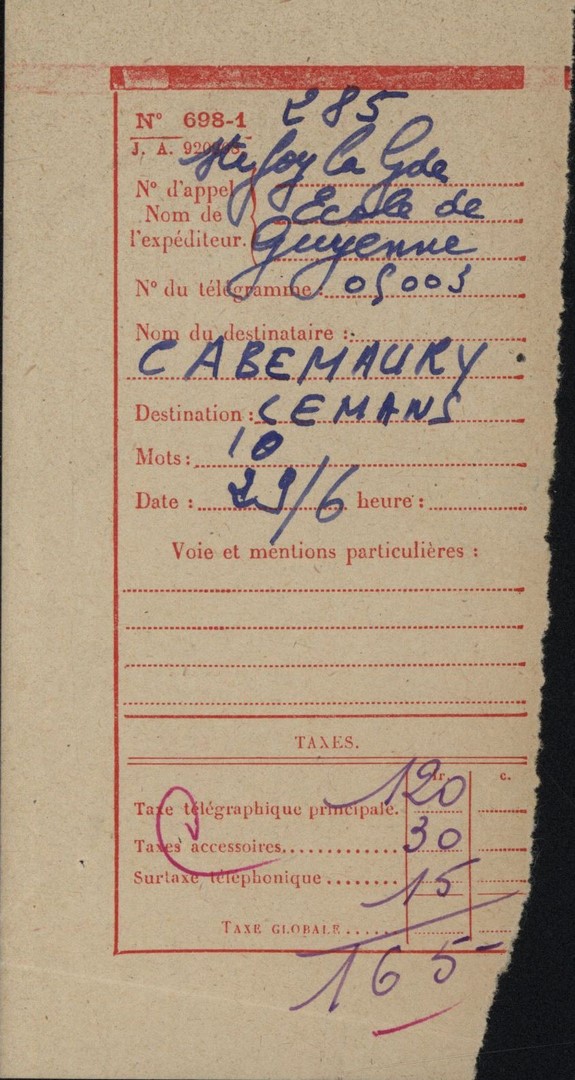 285
N° 698-1
J. A. 920
Ste foy la Gde
N° d'appel
Ecole de
Nom de
l'expéditeur.
Guyenne
N° du télégramme : 05003
Nom du destinataire :
CABEMAURY
Destination : LEMANS
Mots : 10
Date : 29/6 heure :
Voie et mentions particulières :
TAXES.
fr. c.
Taxe télégraphique principale. 120
Taxes accessoires............ 30
Surtaxe téléphonique ........ 15
TAXE GLOBALE .....
165-